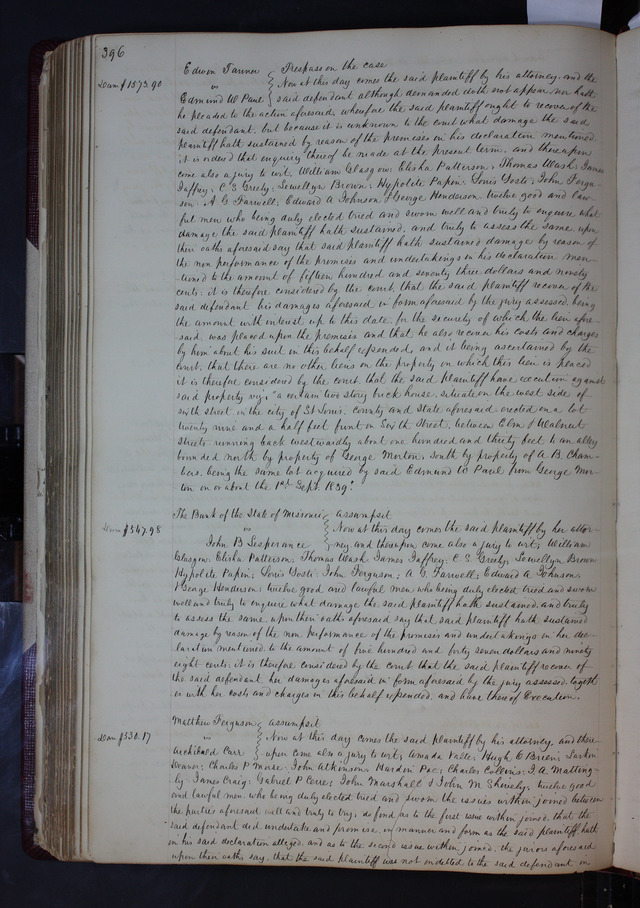 396
Edwin Tanner { Trespass on the case
Dam $1573.90
vs { Now at this day comes the said plaintiff by his attorney, and the
Edmund W Paul { said defendant although demanded doth not appear nor hath
he pleaded to the action aforesaid, wherefore the said plaintiff ought to recover of the
said defendant, but because it is unknown to the court what damage the said
plaintiff hath sustained by reason of the premises in his declaration mentioned.
it is ordered that enquiry thereof be made at the present term. and thereupon
come also a jury to wit, William Glasgow; Elisha Patterson; Thomas Wash; James
Jaffrey; C. S. Greely; Lewellyn Brown; Hypolite Papin; Louis Yosti; John Fergu-
son; A G Farwell; Edward A Johnson & George Henderson. twelve good and law-
ful men who being duly elected tried and sworn well and truly to enquire what
damage the said plaintiff hath sustained, and truly to assess the same upon
their oaths aforesaid say that said plaintiff hath sustained damage by reason of
the non performance of the promises and undertakings in his declaration men-
-tioned to the amount of fifteen hundred and seventy three dollars and ninety
cents: it is therefore considered by the court that the said plaintiff recover of the
said defendant his damages aforesaid in form aforesaid by the jury assessed, being
the amount with interest up to this date. for the security of which the lien afore
-said was placed upon the premises and that he also recover his costs and charges
by him about his suit in this behalf expended, and it being ascertained by the
Court, that there are no other liens on the property on which this lien is placed
it is therefore considered by the court. that the said plaintiff have execution against
said property viz; "a certain two story brick house, situate on the west side of
sixth street in the city of St Louis, County and State aforesaid. erected on a lot
twenty nine and a half feet front on Sixth Street, between Elm & Walnut
streets running back westwardly about one hundred and thirty feet to an alley
bounded north by property of George Morton, South by property of A. B. Cham-
bers, being the same lot acquired by said Edmund W Paul from George Mor-
ton on or about the 1st Sept. 1839."
The Bank of the State of Missouri { assumpsit
Dam $547.98
vs { Now at this day comes the said plaintiff by her attor-
John B Lesperance { ney and thereupon come also a jury to wit; William
Glasgow; Elisha Patterson; Thomas Wash; James Jaffrey; C. S. Greely; Lewellyn Brown
Hypolite Papin; Louis Yosti; John Ferguson; A. G. Farwell; Edward A Johnson
& George Henderson; twelve good and lawful men who being duly elected tried and sworn
well and truly to enquire what damage the said plaintiff hath sustained. and truly
to assess the same. upon their oaths aforesaid say that said plaintiff hath sustained
damage by reason of the non performance of the promises and undertakings in her dec-
laration mentioned to the amount of five hundred and forty seven dollars and ninety
eight cents: it is therefore considered by the court that the said plaintiff recover of
the said defendant her damages aforesaid in form aforesaid by the jury assessed. togeth
er with her costs and charges in this behalf expended. and have thereof Execution.
Matthew Ferguson { assumpsit
Dam $530.17
vs { Now at this day comes the said plaintiff by his attorney, and there
Archibald Carr { upon come also a jury to wit; Amada Valle; Hugh O'Brien; Larkin
Deaver; Charles P Morse; John Atkinson; Hardin Pac; Charles Collins; J. A. Matting-
ly; James Craig; Gabriel P Cerre; John Marshall & John M Shively; twelve good
and lawful men who being duly elected tried and sworn the issues within joined between
the parties aforesaid well and truly to try, do find, as to the first issue within joined. that the
said defendant did undertake and promise, in manner and form as the said plaintiff hath
in his said declaration alleged. and as to the second issue within joined. the jurors aforesaid
upon their oaths say, that the said plaintiff was not indebted to the said defendant in